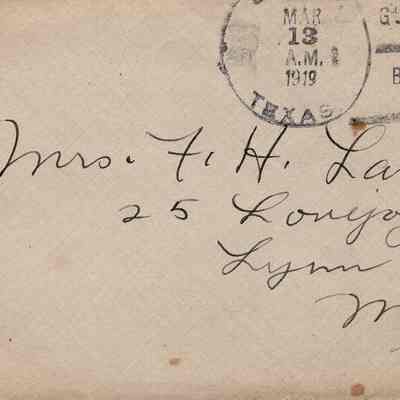 MAR
13
A.M.
1919
TEXAS
Mrs. F. H. La
25 Lovejoy
Lynn
M